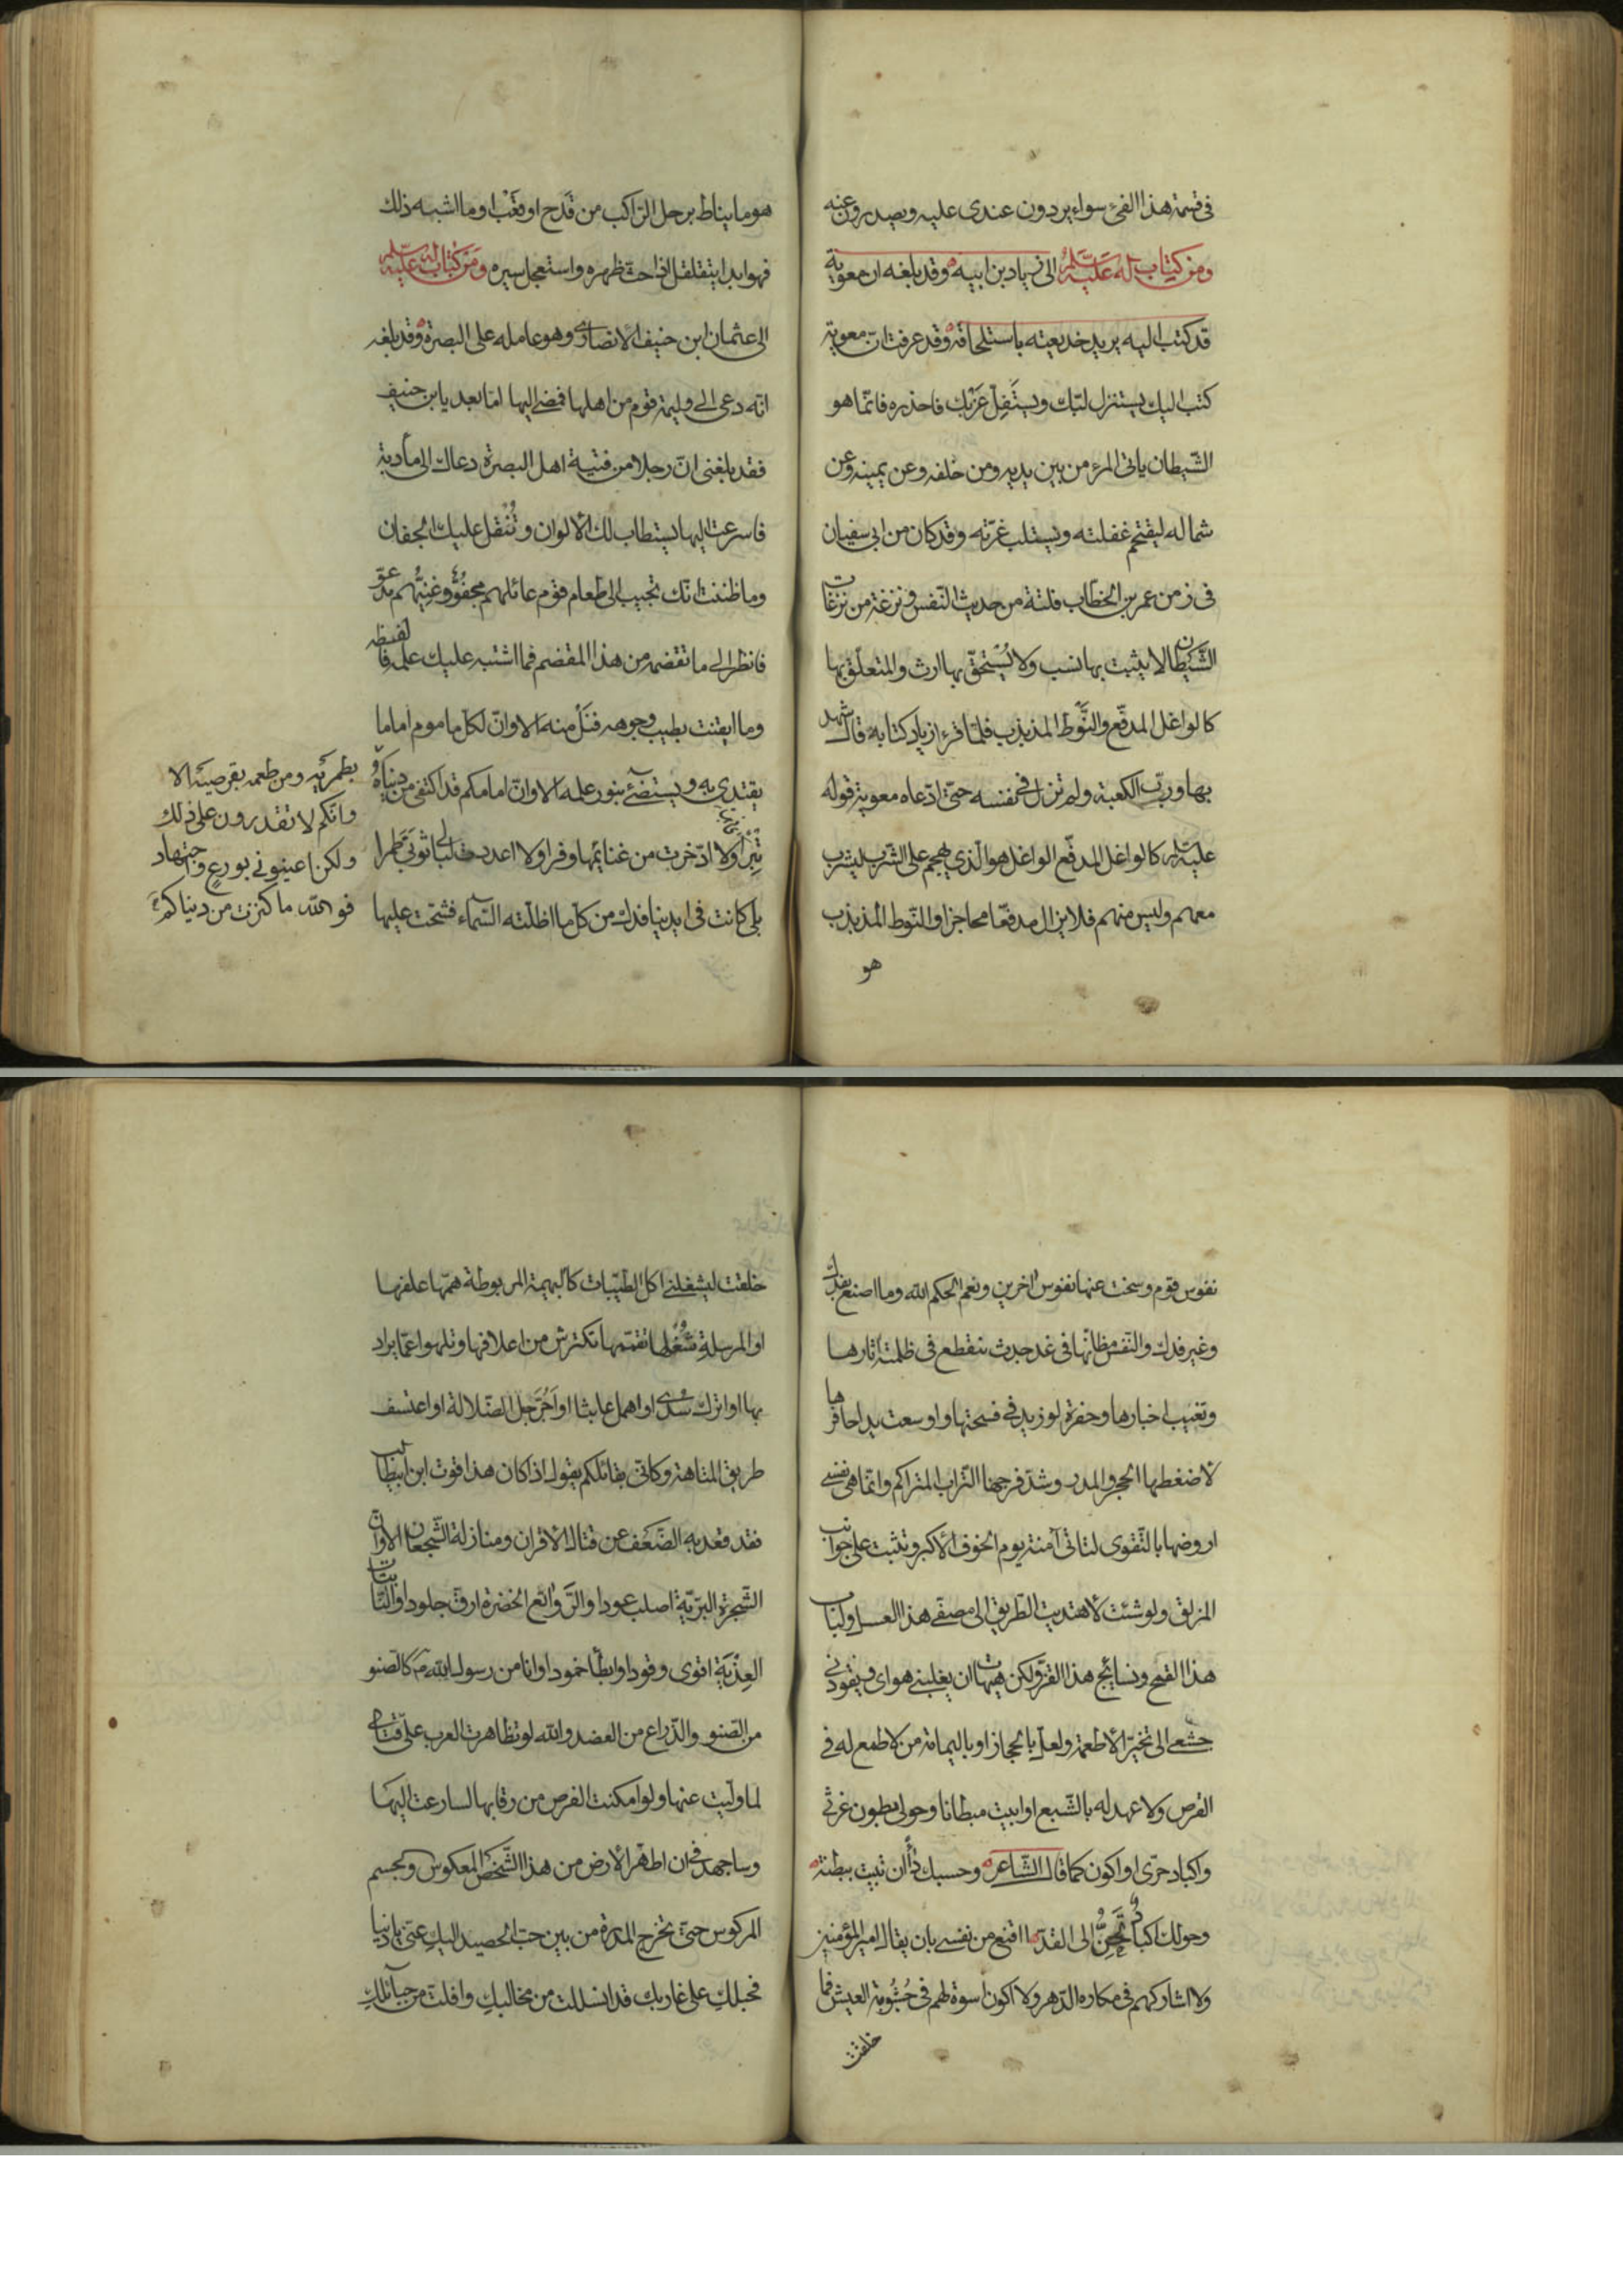 في قسمة هذا الفئ سواء يردون عندى عليه ويصدرون عنه
ومن كتاب له عليه السلم الى زياد بن ابيه وقد بلغه ان معوية
قد كتب اليه يريد خديعته باستلحاقه وقد عرفت ان معوية
كتب اليك يستنزل لبّك ويستفلّ غربك فاحذره فانّما هو
الشّيطان ياتى المرء من بين يديه ومن خلفه وعن يمينه وعن
شماله ليقتحم غفلته ويستلب غرّته وقد كان من ابى سفيان
في زمن عمر بن الخطاب فلتة من حديث النّفس ونزغة من نزغات
الشّيطان لا يثبت بها نسب ولا يُستحقّ بها ارث والمتعلّق بها
كالواغل المدفّع والنَّوط المذبذب فلمّا قرء زياد كتابه قال شهد
بها وربّ الكعبة ولم تزل في نفسه حتّى ادّعاه معوية قوله
عليه السلم كالواغل المدفّع الواغل هو الّذي يهجم على الشّرب ليشرب
معهم وليس منهم فلا يزال مدفّعا محاجزا والنّوط المذبذب
هو
هو ما يناط برحل الرّاكب من قَدَح او قَعْب او ما اشبه ذلك
فهو ابدا يتقلقل اذا حثّ ظهره واستعجل سيره ومن كتاب له عليه السلم
الى عثمان ابن حنيف الانصارى وهو عامله على البصرة وقد بلغه
انّه دعى الى وليمة قوم من اهلها فمضى اليها امّا بعد يا بن حنيف
فقد بلغنى انّ رجلا من فتية اهل البصرة دعاك الى مأدبة
فاسرعت اليها يستطاب لك الالوان وتُنقل عليك الجفان
وما ظننت انّك تجيب الى طعام قوم عائلهم مجفوّ وغنيّهم مدعوّ
فانظر الى ما تقضمه من هذا المقضم فما اشتبه عليك علمه فالفظه
وما ايقنت بطيب وجوهه فنَل منه الا وانّ لكلّ ماموم اماما
يقتدى به ويستضئ بنور علمه الا وانّ امامكم قد اكتفى من دنياكم
بطمريه ومن طعمه بقرصيه الا
وانّكم لا تقدرون على ذلك
ولكن اعينونى بورع واجتهاد
فو الله ما كنزت من دنياكم
تبرا ولا ادّخرت من غنائمها وفرا ولا اعددت لبالى ثوبى طمرا
بلى كانت فى ايدينا فدك من كلّ ما اظلّته السّماء فشحّت عليها
نفوس قوم وسخت عنها نفوس اخرين ونعم الحكم الله وما اصنع بفدك
وغير فدك والنّفس مظانّها فى غد جدث تنقطع فى ظلمته اثارها
وتغيب اخبارها وحفرة لو زيد فى فسحتها واوسعت يدا حافرها
لاضغطها الحجر والمدر وسدّ فرجها التّراب المتراكم وانّما هى نفسى
اروضها بالتّقوى لتاتى آمنة يوم الخوف الاكبر وتثبت على جوانب
المزلق ولو شئت لاهتديت الطّريق الى مصفّى هذا العسل ولباب
هذا القمح ونسائج هذا القزّ ولكن هيهات ان يغلبنى هواى ويقودنى
جشعى الى تخيّر الاطعمة ولعلّ بالحجاز او باليمامة من لا طمع له فى
القرص ولا عهد له بالشّبع او ابيت مبطانا وحولى بطون غرثى
واكباد حرّى او اكون كما قال الشّاعر وحسبك دأ ان تبيت ببطنة
وحولك اكباد تَحِنُّ الى القدّ ااقنع من نفسى بان يقال امير المؤمنين
ولا اشاركهم فى مكاره الدّهر ولا اكون اسوة لهم فى جُشُوبة العيش فما
خلقت
خلقت ليشغلنى اكل الطّيّبات كالبهيمة المربوطة همّها علفها
او المرسلة شُغُلها تقمّمها تكترش من اعلافها وتلهوا عمّا يراد
بها او اترك سُدًى او اهمل عابثا او اَجُرَّ حبل الضّلالة او اعتسف
طريق المتاهة وكانّى بقائلكم يقول اذا كان هذا قوت ابن ابيطالب
فقد قعد به الضّعف عن قتال الاقران ومنازلة الشّجعان الا وانّ
الشّجرة البرّيّة اصلب عودا والرّوائع الخضرة ارقّ جلودا والنّباتات
العِذْيَة اقوى وقودا وابطأ خمودا وانا من رسول الله م كالصّنو
من الصّنو والذّراع من العضد والله لو تظاهرت العرب على قتالى
لما ولّيت عنها ولو امكنت الفرص من رقابها لسارعت اليها
وساجهد فى ان اطهّر الارض من هذا الشّخص المعكوس والجسم
المركوس حتّى تخرج المدرة من بين حبّ الحصيد اليكِ عنّى يا دنيا
فحبلكِ على غاربك قد انسللت من مخالبكِ وافلتّ من حبائلكِ